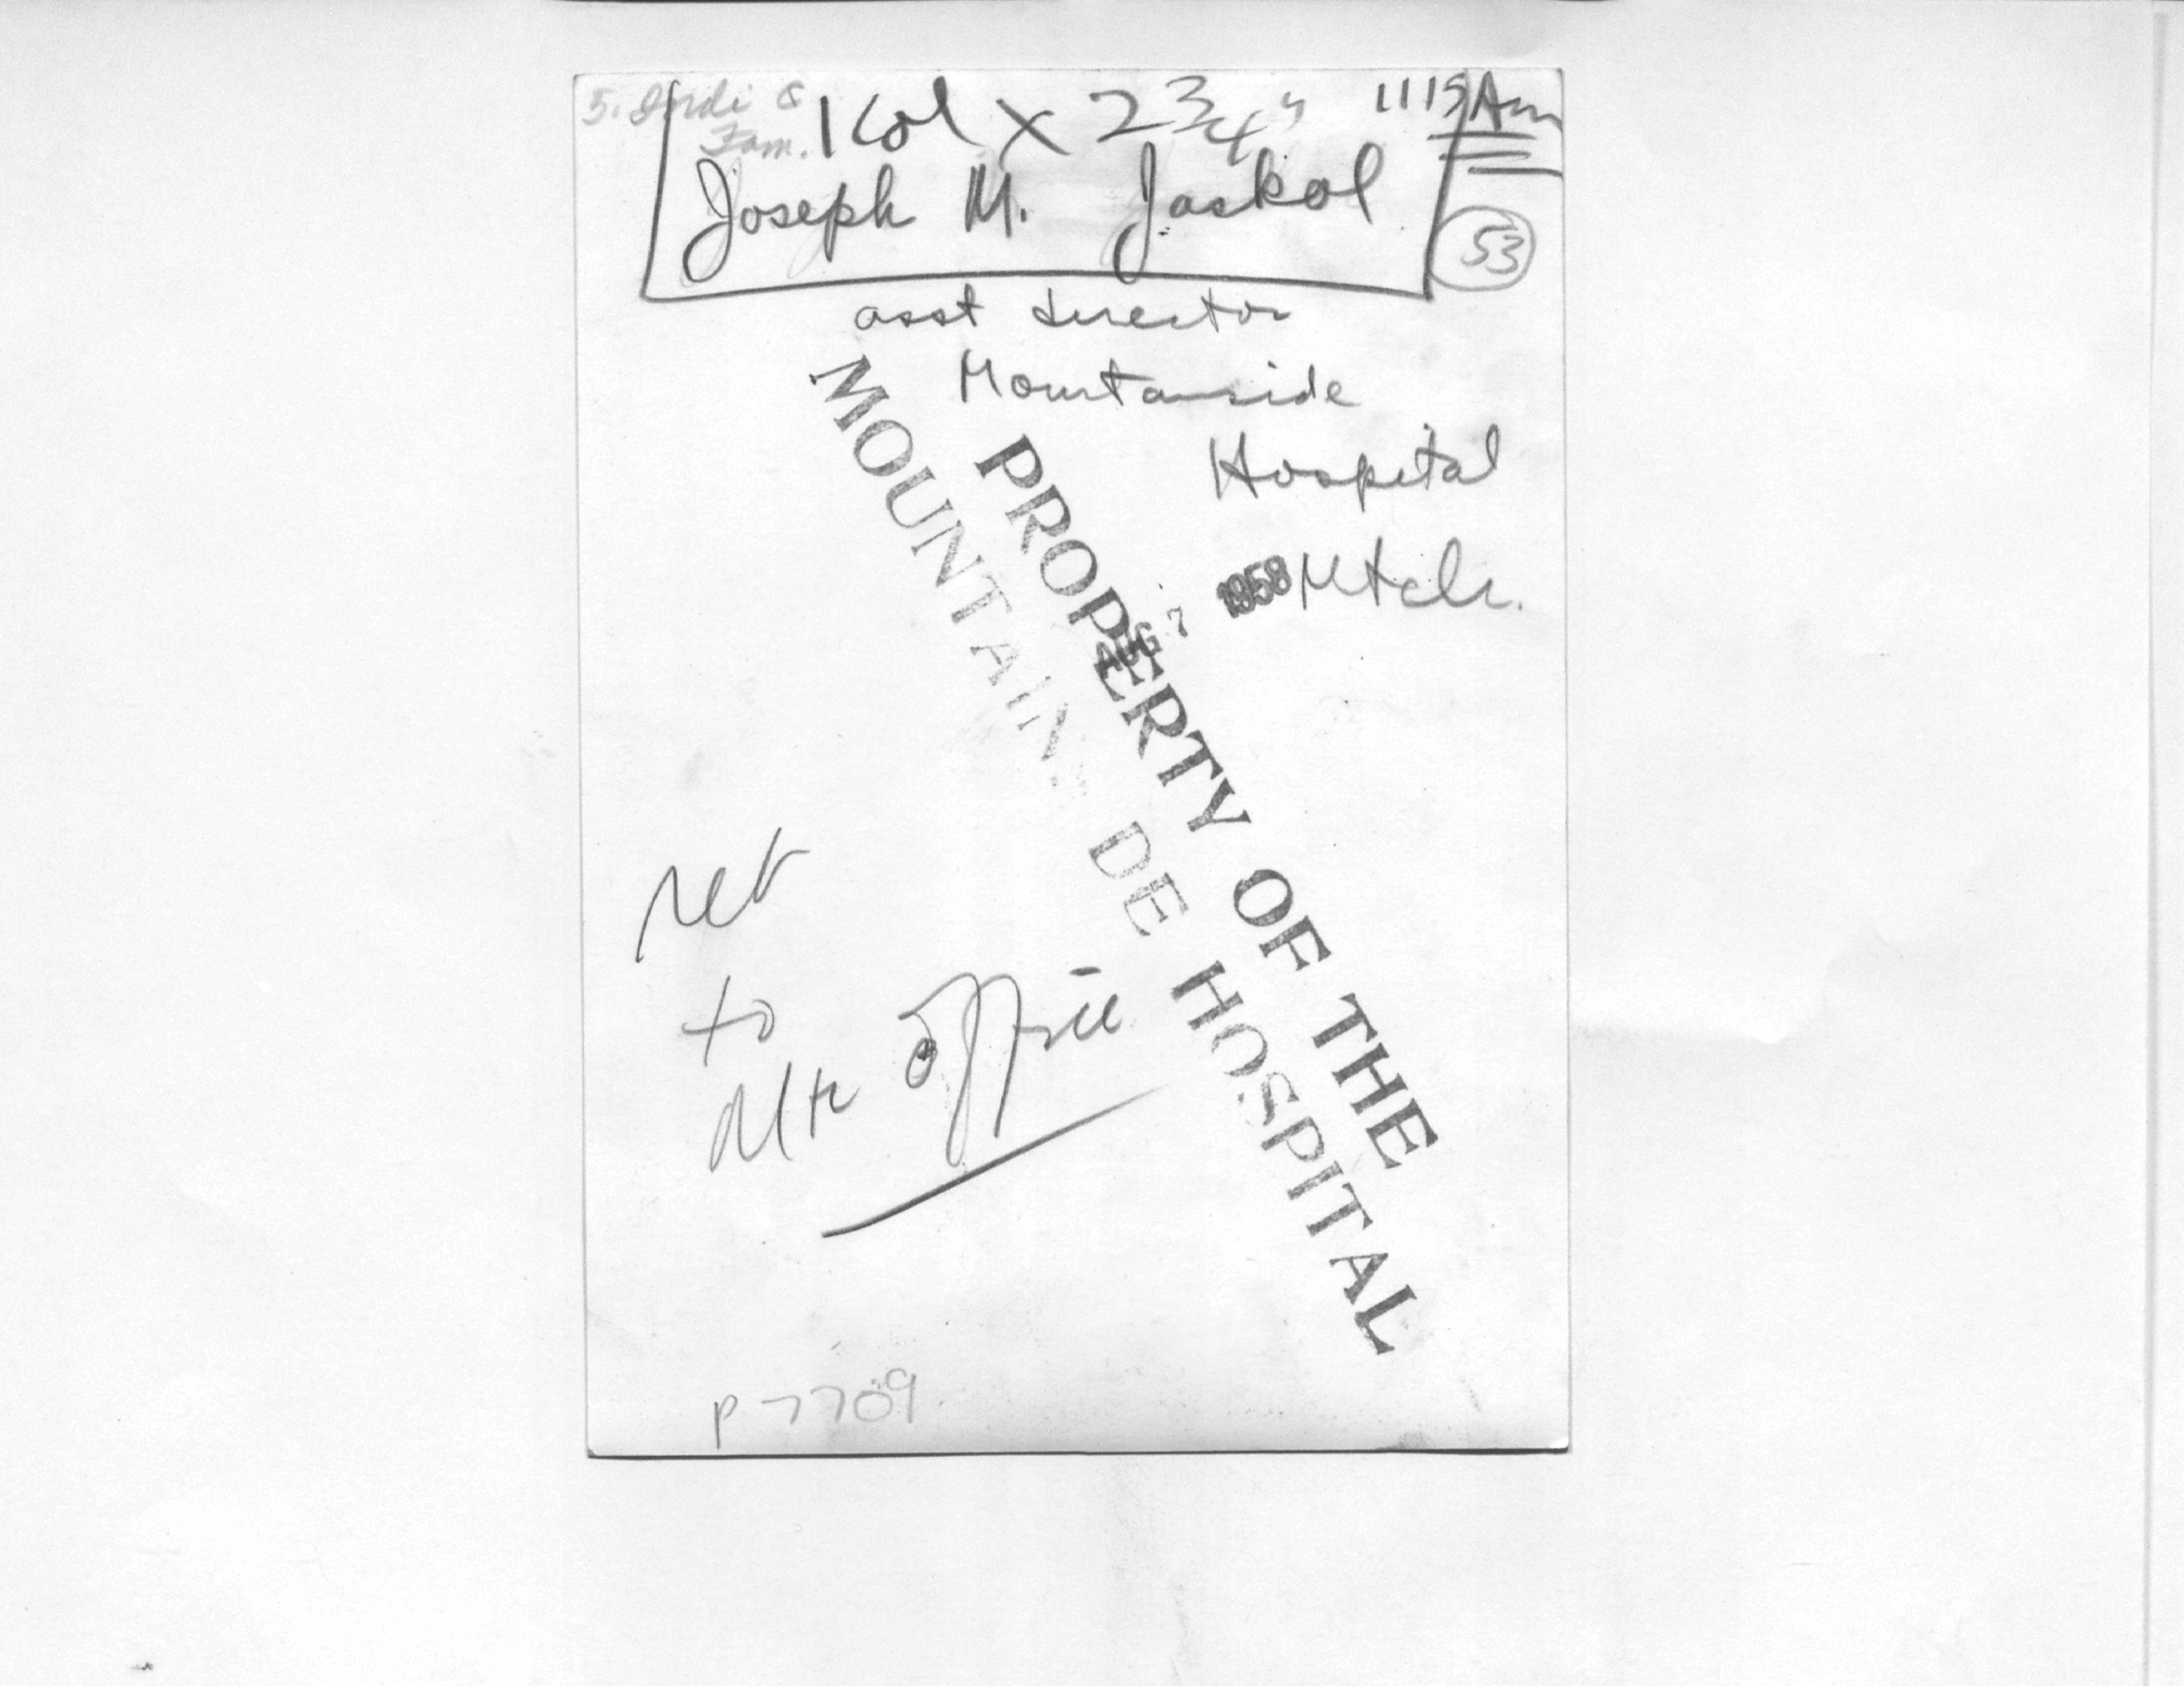 5. Indi &
Fam.
1 Col X 2 3/4"
1115 Am
Joseph M. Jaskol
53
asst director
Mountainside
Hospital
Mtclr.
AUG 7 1958
PROPERTY OF THE
MOUNTAIN DE HOSPITAL
ret
to
Mtc office
P 7709